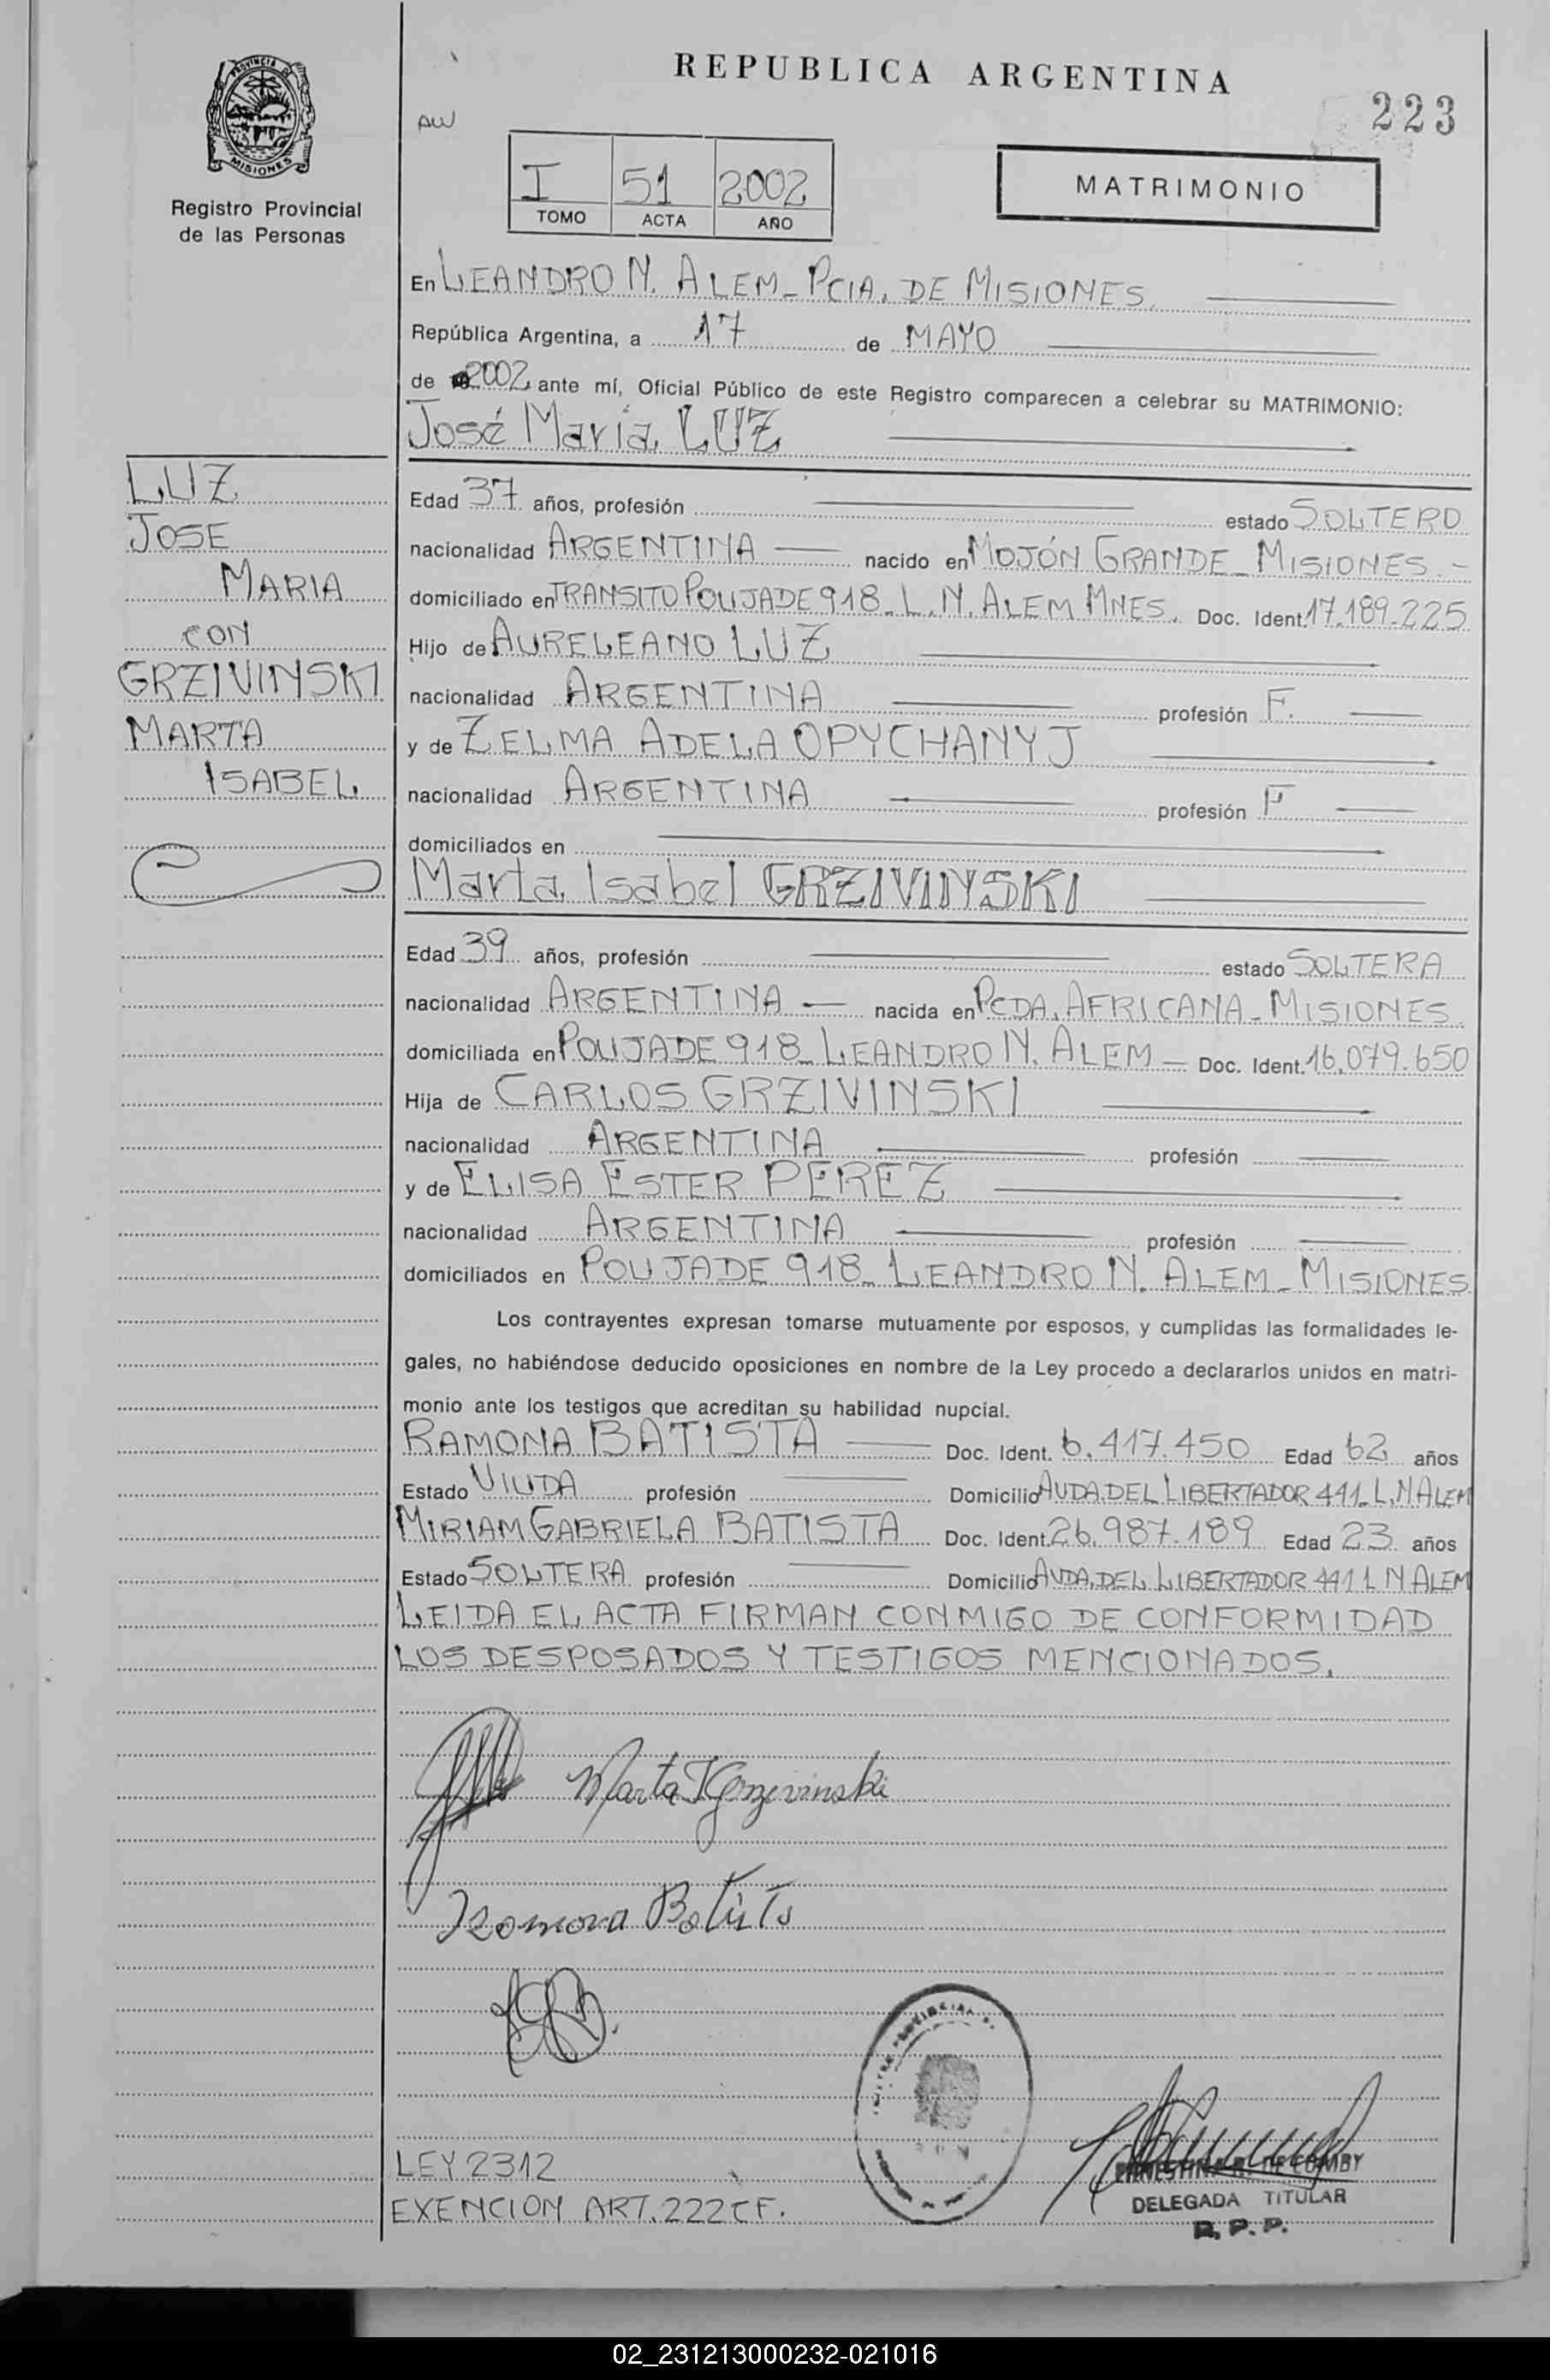 REPUBLICA ARGENTINA
223
PROVINCIA DE
MISIONES
Registro Provincial
de las Personas
AW
I 51 2002
TOMO ACTA AÑO
MATRIMONIO
En LEANDRO N. ALEM - PCIA. DE MISIONES.
República Argentina, a 17 de MAYO
de 2002 ante mí, Oficial Público de este Registro comparecen a celebrar su MATRIMONIO:
José María LUZ
LUZ
JOSE
MARIA
CON
GRZIVINSKI
MARTA
ISABEL
Edad 37 años, profesión estado SOLTERO
nacionalidad ARGENTINA nacido en MOJÓN GRANDE - MISIONES.-
domiciliado en TRANSITO POUJADE 918 - L. N. ALEM MNES. Doc. Ident. 17.189.225
Hijo de AURELEANO LUZ
nacionalidad ARGENTINA profesión F.
y de ZELMA ADELA OPYCHANYJ
nacionalidad ARGENTINA profesión F
domiciliados en
Marta Isabel GRZIVINSKI
Edad 39 años, profesión estado SOLTERA
nacionalidad ARGENTINA nacida en PCDA. AFRICANA - MISIONES.
domiciliada en POUJADE 918 - LEANDRO N. ALEM - Doc. Ident. 16.079.650
Hija de CARLOS GRZIVINSKI
nacionalidad ARGENTINA profesión
y de ELISA ESTER PEREZ
nacionalidad ARGENTINA profesión
domiciliados en POUJADE 918 - LEANDRO N. ALEM - MISIONES
Los contrayentes expresan tomarse mutuamente por esposos, y cumplidas las formalidades le-
gales, no habiéndose deducido oposiciones en nombre de la Ley procedo a declararlos unidos en matri-
monio ante los testigos que acreditan su habilidad nupcial.
RAMONA BATISTA Doc. Ident. 6.417.450 Edad 62 años
Estado VIUDA profesión Domicilio AVDA. DEL LIBERTADOR 441 - L. N ALEM
MIRIAM GABRIELA BATISTA Doc. Ident. 26.987.189 Edad 23 años
Estado SOLTERA profesión Domicilio AVDA. DEL LIBERTADOR 441 L N ALEM
LEIDA EL ACTA FIRMAN CONMIGO DE CONFORMIDAD
LOS DESPOSADOS Y TESTIGOS MENCIONADOS.
Marta I Grzivinski
Ramona Batista
LEY 2312
EXENCION ART. 222 C F.
DELEGADA TITULAR
R. P. P.
02_231213000232-021016